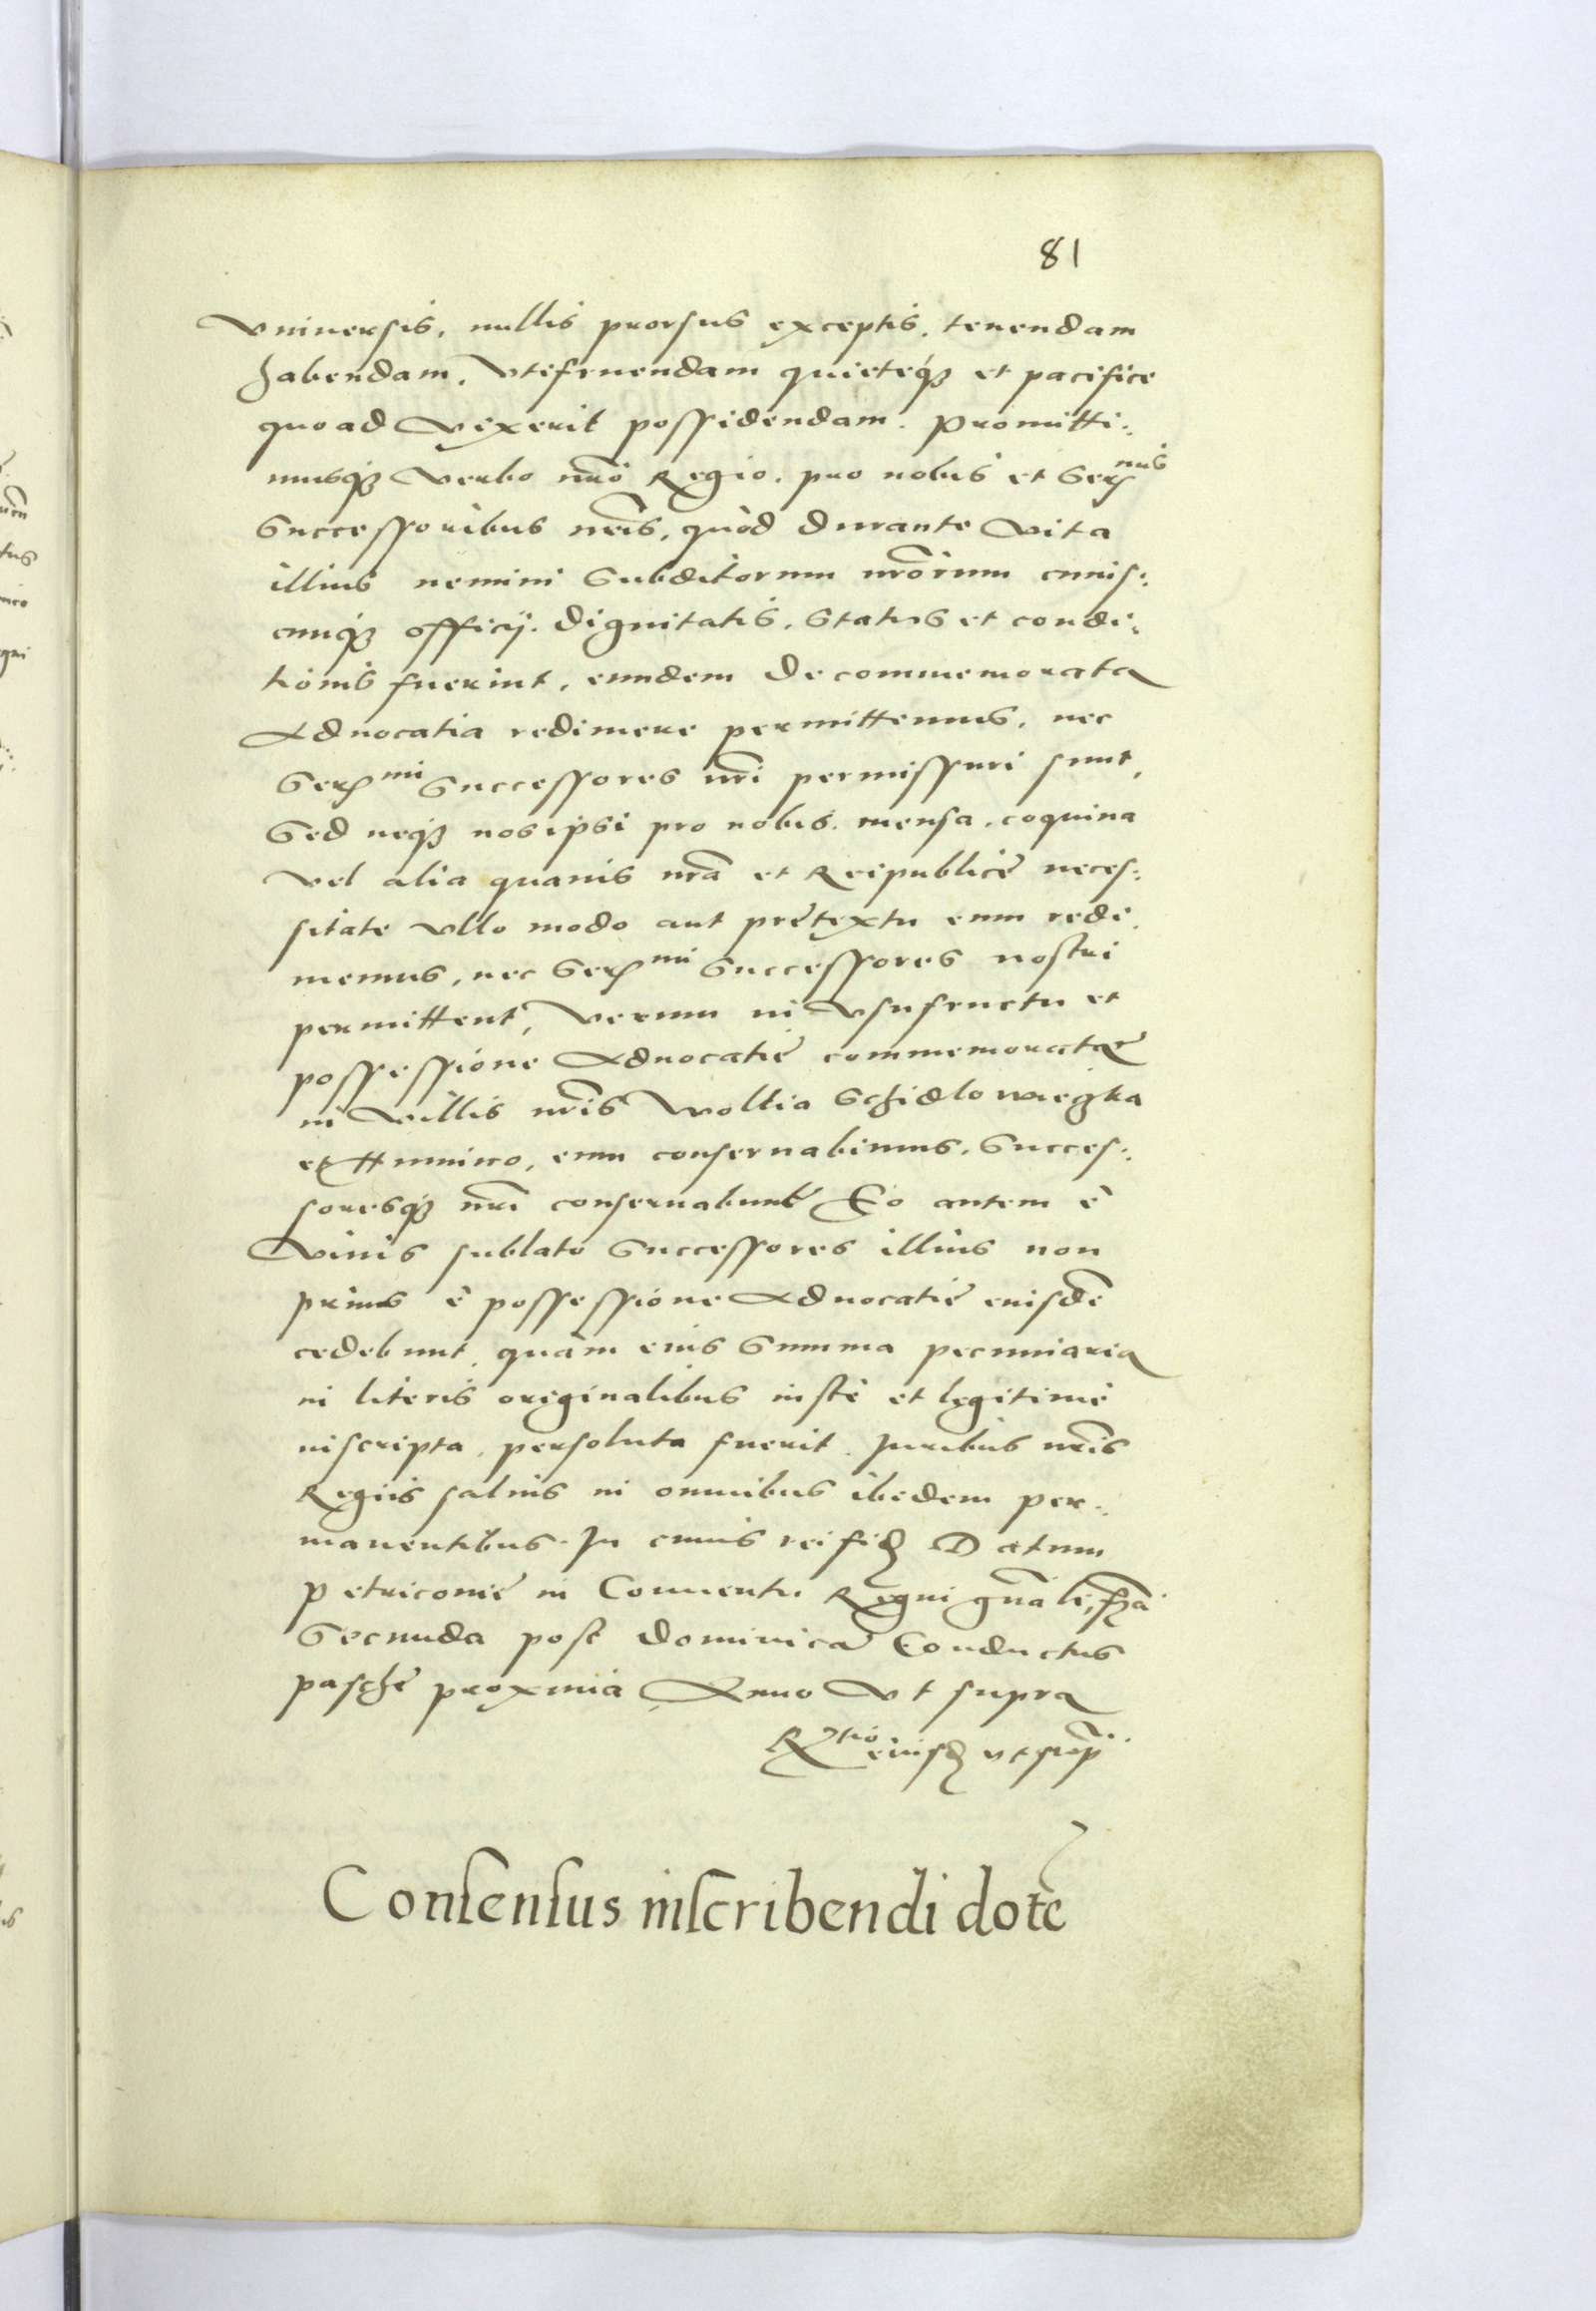 81
Vniuersis, nullis prorsus exceptis, tenendam
habendam, Vtifruendam quietéq₃ et pacifice
quoad Vixerit possidendam. Promitti:
musq₃ Verbo nr̃o Regio, pro nobis et Ser^mis
Successoribus nr̃is, quòd durante Vita
illius nemini Subditorum nr̃orum cuius:
cunq₃ officij. dignitatis, Status et condi:
tionis fuerint, eundem de commemorata
Aduocatia redimere permittemus, nec
Ser^mi Successores nr̃i permissuri sunt,
Sed neq₃ nos ipsi pro nobis, mensa, coquina
vel alia quauis nr̃a et Reipublicę neces:
sitate Vllo modo aut prętextu eum redi:
memus, nec Ser^mi Successores nostri
permittent, Verum in Vsufructu et
possessione Aduocatię commemoratae
in Villis nr̃is Woltia Schidlowiegka
et Hunino, eum conseruabimus, Succes:
soresq₃ nr̃i conseruabunt Eo autem è
Viuis sublato Successores illius non
prius è possessione Aduocatię eiusdẽ
cedebunt, quàm eius Summa pecuniaria
in literis originalibus iustè et legitimè
inscripta, persoluta fuerit. Juribus nr̃is
Regiis saluis in omnibus ibidem per:
manentibus. In cuius rei fid Datum
Petricouię in Conuentu Regni gñali, fr̃ia
Secunda post dominicã Conductus
paschę proxima, Anno Vt supra
R^tio eiusd vt supr̃.
Consensus inscribendi dotẽ